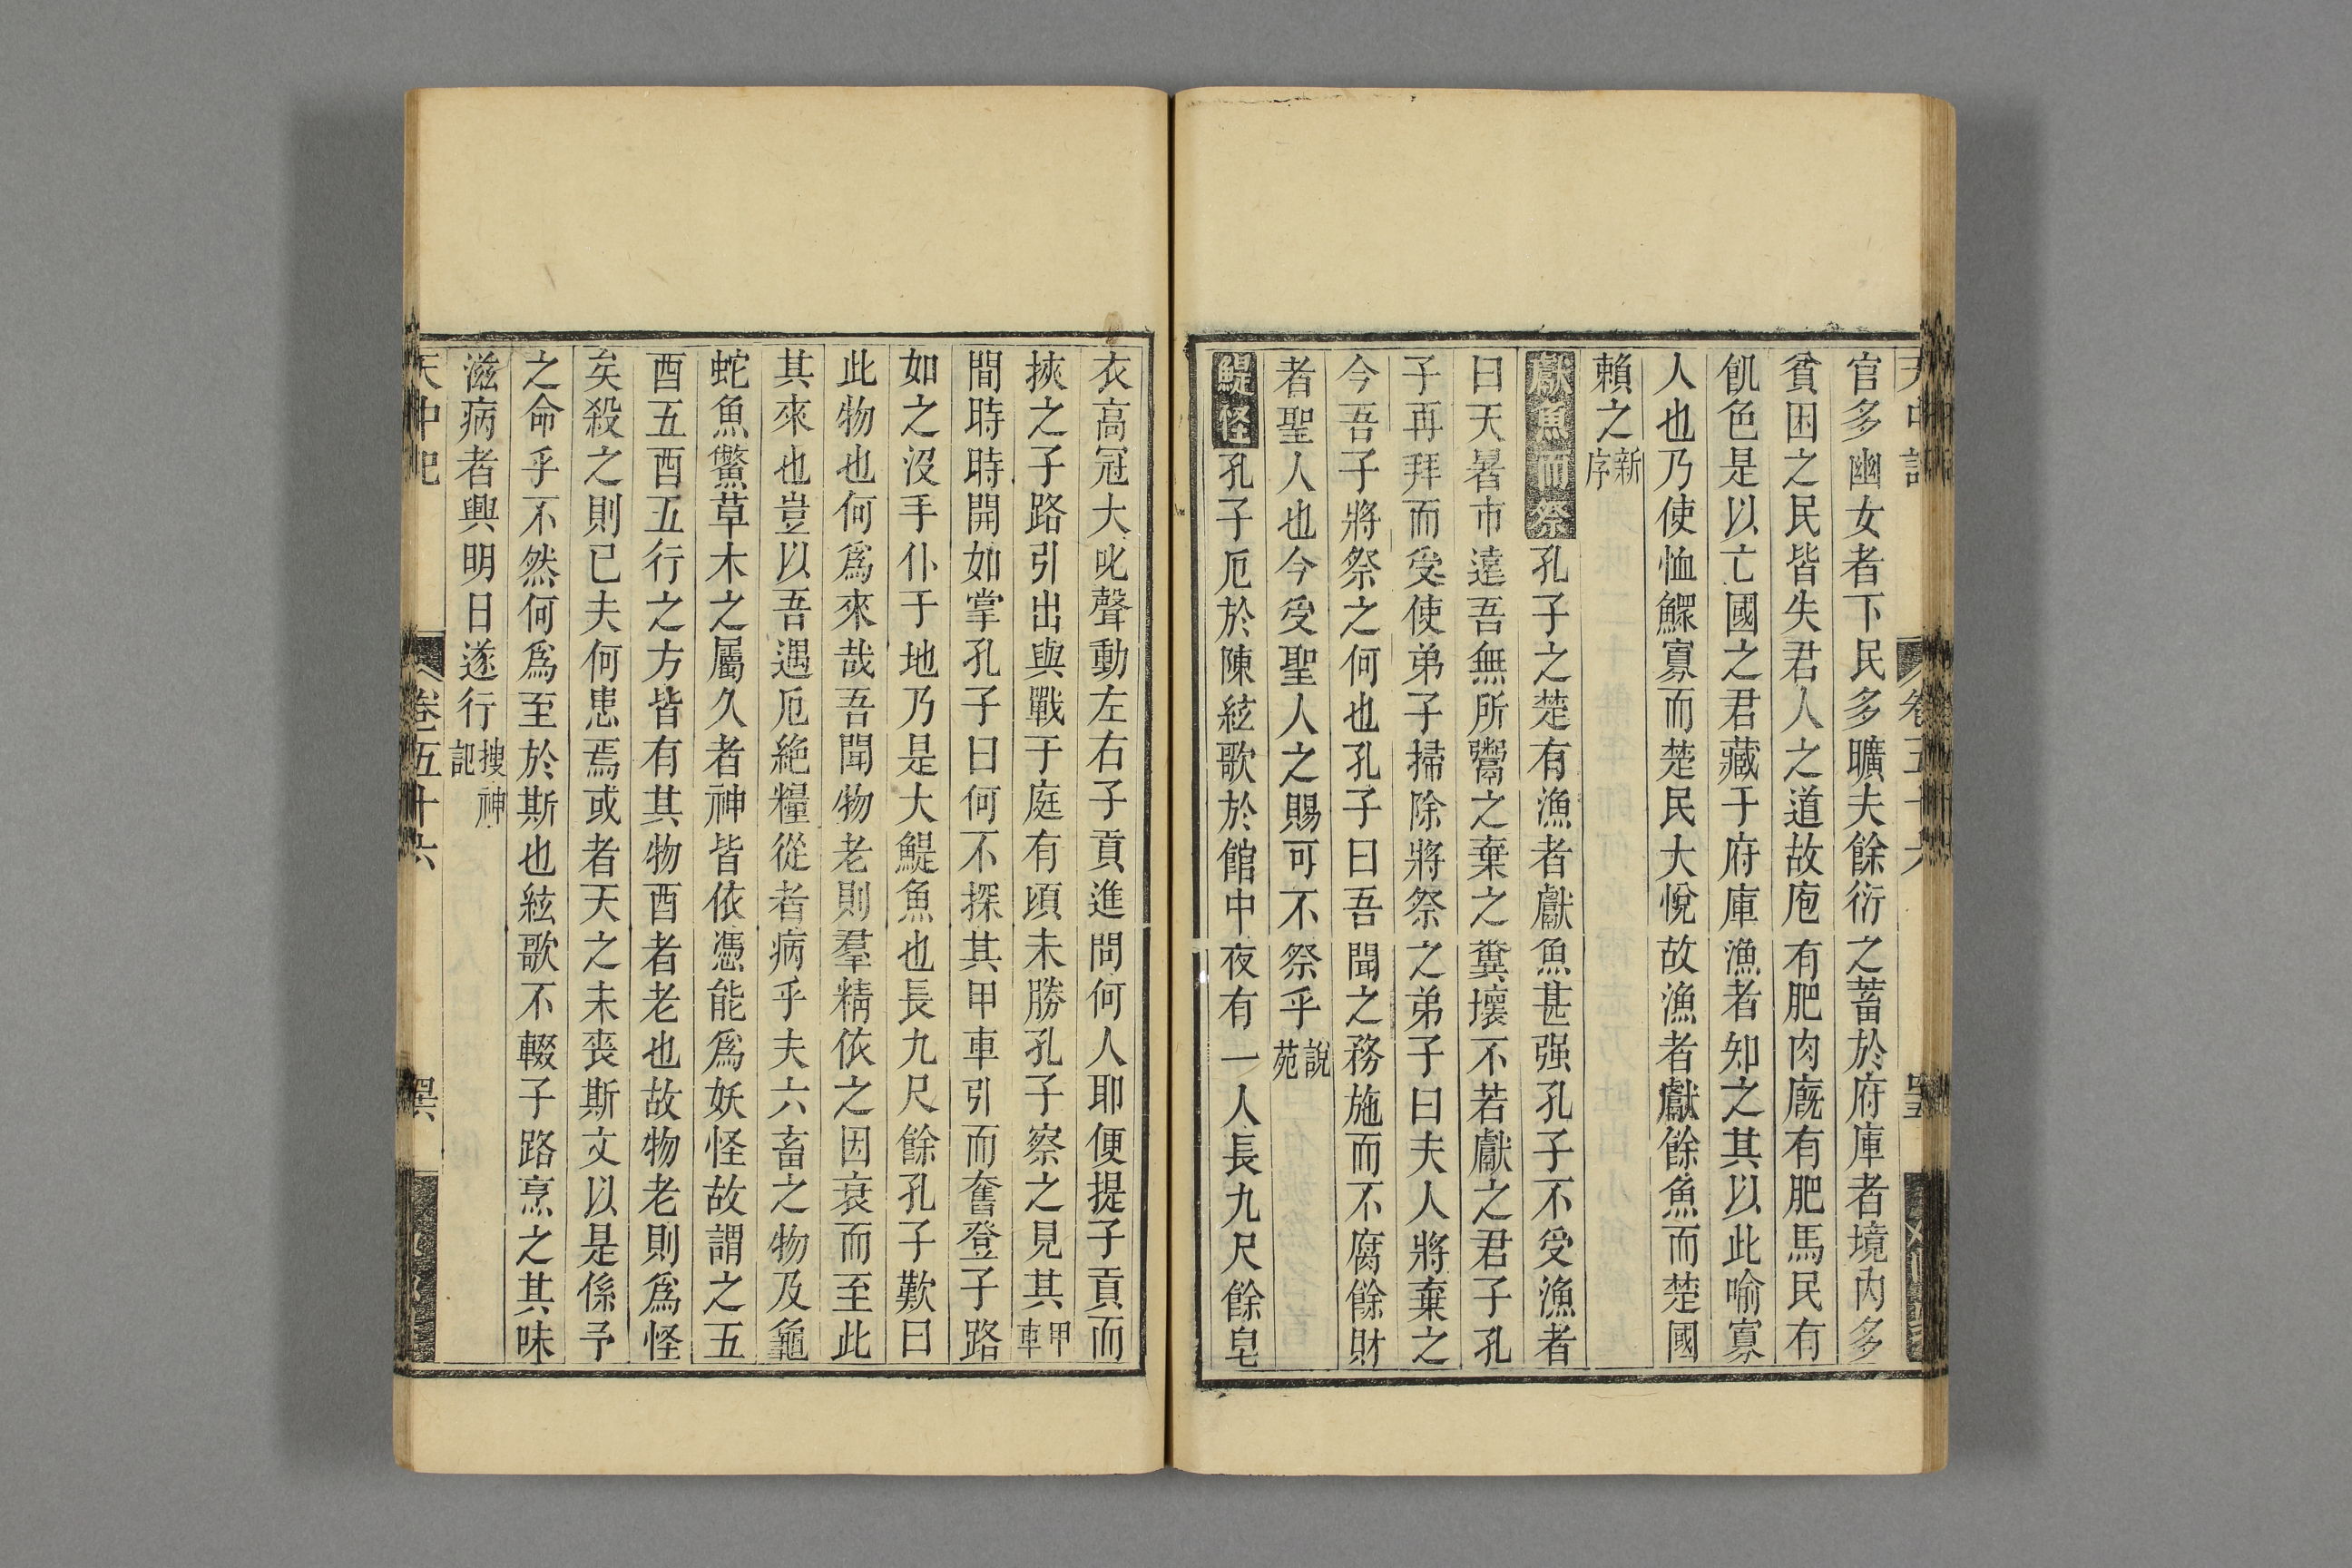 天中記 卷五十六 
官多幽女者下民多曠夫餘衍之蓄於府庫者境內多
貧困之民皆失君人之道故庖有肥肉廐有肥馬民有
飢色是以亡國之君藏于府庫漁者知之其以此喻寡
人也乃使恤鰥寡而楚民大悅故漁者獻餘魚而楚國
賴之新序
獻魚而祭孔子之楚有漁者獻魚甚强孔子不受漁者
曰天暑市遠吾無所鬻之棄之糞壤不若獻之君子孔
子再拜而受使弟子掃除將祭之弟子曰夫人將棄之
今吾子將祭之何也孔子曰吾聞之務施而不腐餘財
者聖人也今受聖人之賜可不祭乎說苑
鯷怪孔子厄於陳絃歌於館中夜有一人長九尺餘皂
衣高冠大叱聲動左右子貢進問何人耶便提子貢而
挾之子路引出與戰于庭有頃未勝孔子察之見其甲車
間時時開如掌孔子曰何不探其甲車引而奮登子路
如之沒手仆于地乃是大鯷魚也長九尺餘孔子歎曰
此物也何爲來哉吾聞物老則羣精依之因衰而至此
其來也豈以吾遇厄絶糧從者病乎夫六畜之物及龜
蛇魚鱉草木之屬久者神皆依憑能爲妖怪故謂之五
酉五酉五行之方皆有其物酉者老也故物老則爲怪
矣殺之則已夫何患焉或者天之未喪斯文以是係予
之命乎不然何爲至於斯也絃歌不輟子路烹之其味
滋病者興明日遂行搜神記
天中記 卷五十六